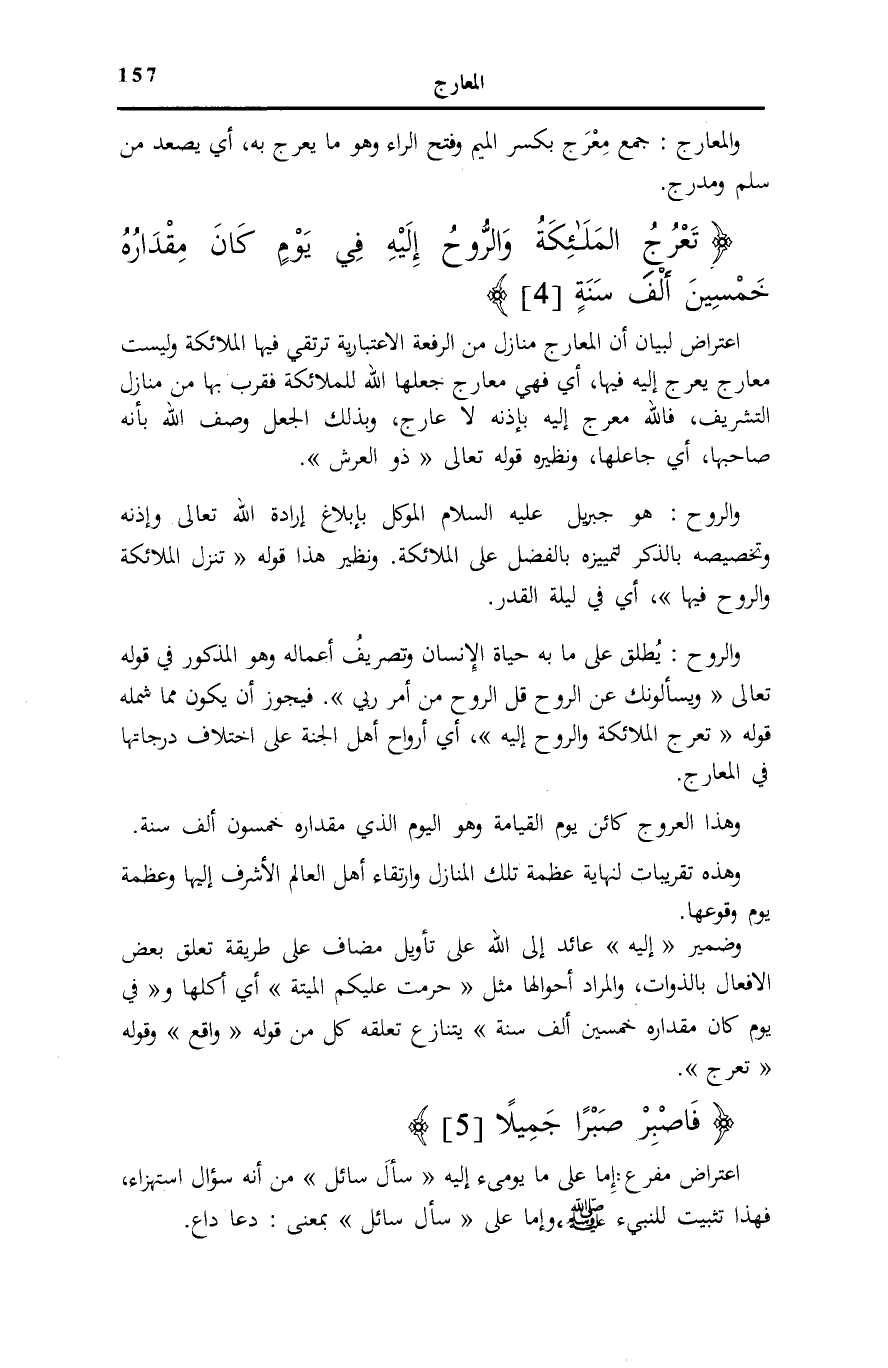 157
المعارج
والمعارج : جمع مِعْرَج بكسر الميم وفتح الراء وهو ما يعرج به، أي يصعد من
سلم ومدرج.
﴿ تَعْرُجُ المَلَـٰئِكَةُ وَالرُّوحُ إِلَيْهِ فِي يَوْمٍ كَانَ مِقْدَارُهُ
خَمْسِينَ أَلْفَ سَنَةٍ [4] ﴾
اعتراض لبيان أن المعارج منازل من الرفعة الاعتبارية ترتقي فيها الملائكة وليست
معارج يعرج إليه فيها، أي فهي معارج جعلها الله للملائكة فقرب بها من منازل
التشريف، فالله معرج إليه بإذنه لا عارج، وبذلك الجعل وصف الله بأنه
صاحبها، أي جاعلها، ونظيره قوله تعالى « ذو العرش ».
والروح : هو جبريل عليه السلام الموكل بإبلاغ إرادة الله تعالى وإذنه
وتخصيصه بالذكر لتمييزه بالفضل على الملائكة. ونظير هذا قوله « تنزل الملائكة
والروح فيها »، أي في ليلة القدر.
والروح : يُطلق على ما به حياة الإنسان وتصريفُ أعماله وهو المذكور في قوله
تعالى « ويسألونك عن الروح قل الروح من أمر ربي ». فيجوز أن يكون مما شمله
قوله « تعرج الملائكة والروح إليه »، أي أرواح أهل الجنة على اختلاف درجاتها
في المعارج.
وهذا العروج كائن يوم القيامة وهو اليوم الذي مقداره خمسون ألف سنة.
وهذه تقريبات لنهاية عظمة تلك المنازل وارتقاء أهل العالم الأشرف إليها وعظمة
يوم وقوعها.
وضمير « إليه » عائد إلى الله على تأويل مضاف على طريقة تعلق بعض
الافعال بالذوات، والمراد أحوالها مثل « حرمت عليكم الميتة » أي أكلها و« في
يوم كان مقداره خمسين ألف سنة » يتنازع تعلقه كل من قوله « واقع » وقوله
« تعرج ».
﴿ فَاصْبِرْ صَبْرًا جَمِيلًا [5] ﴾
اعتراض مفرع:إما على ما يومىء إليه « سألَ سائل » من أنه سؤال استهزاء،
فهذا تثبيت للنبيء ﷺ،وإما على « سأل سائل » بمعنى : دعا داع.